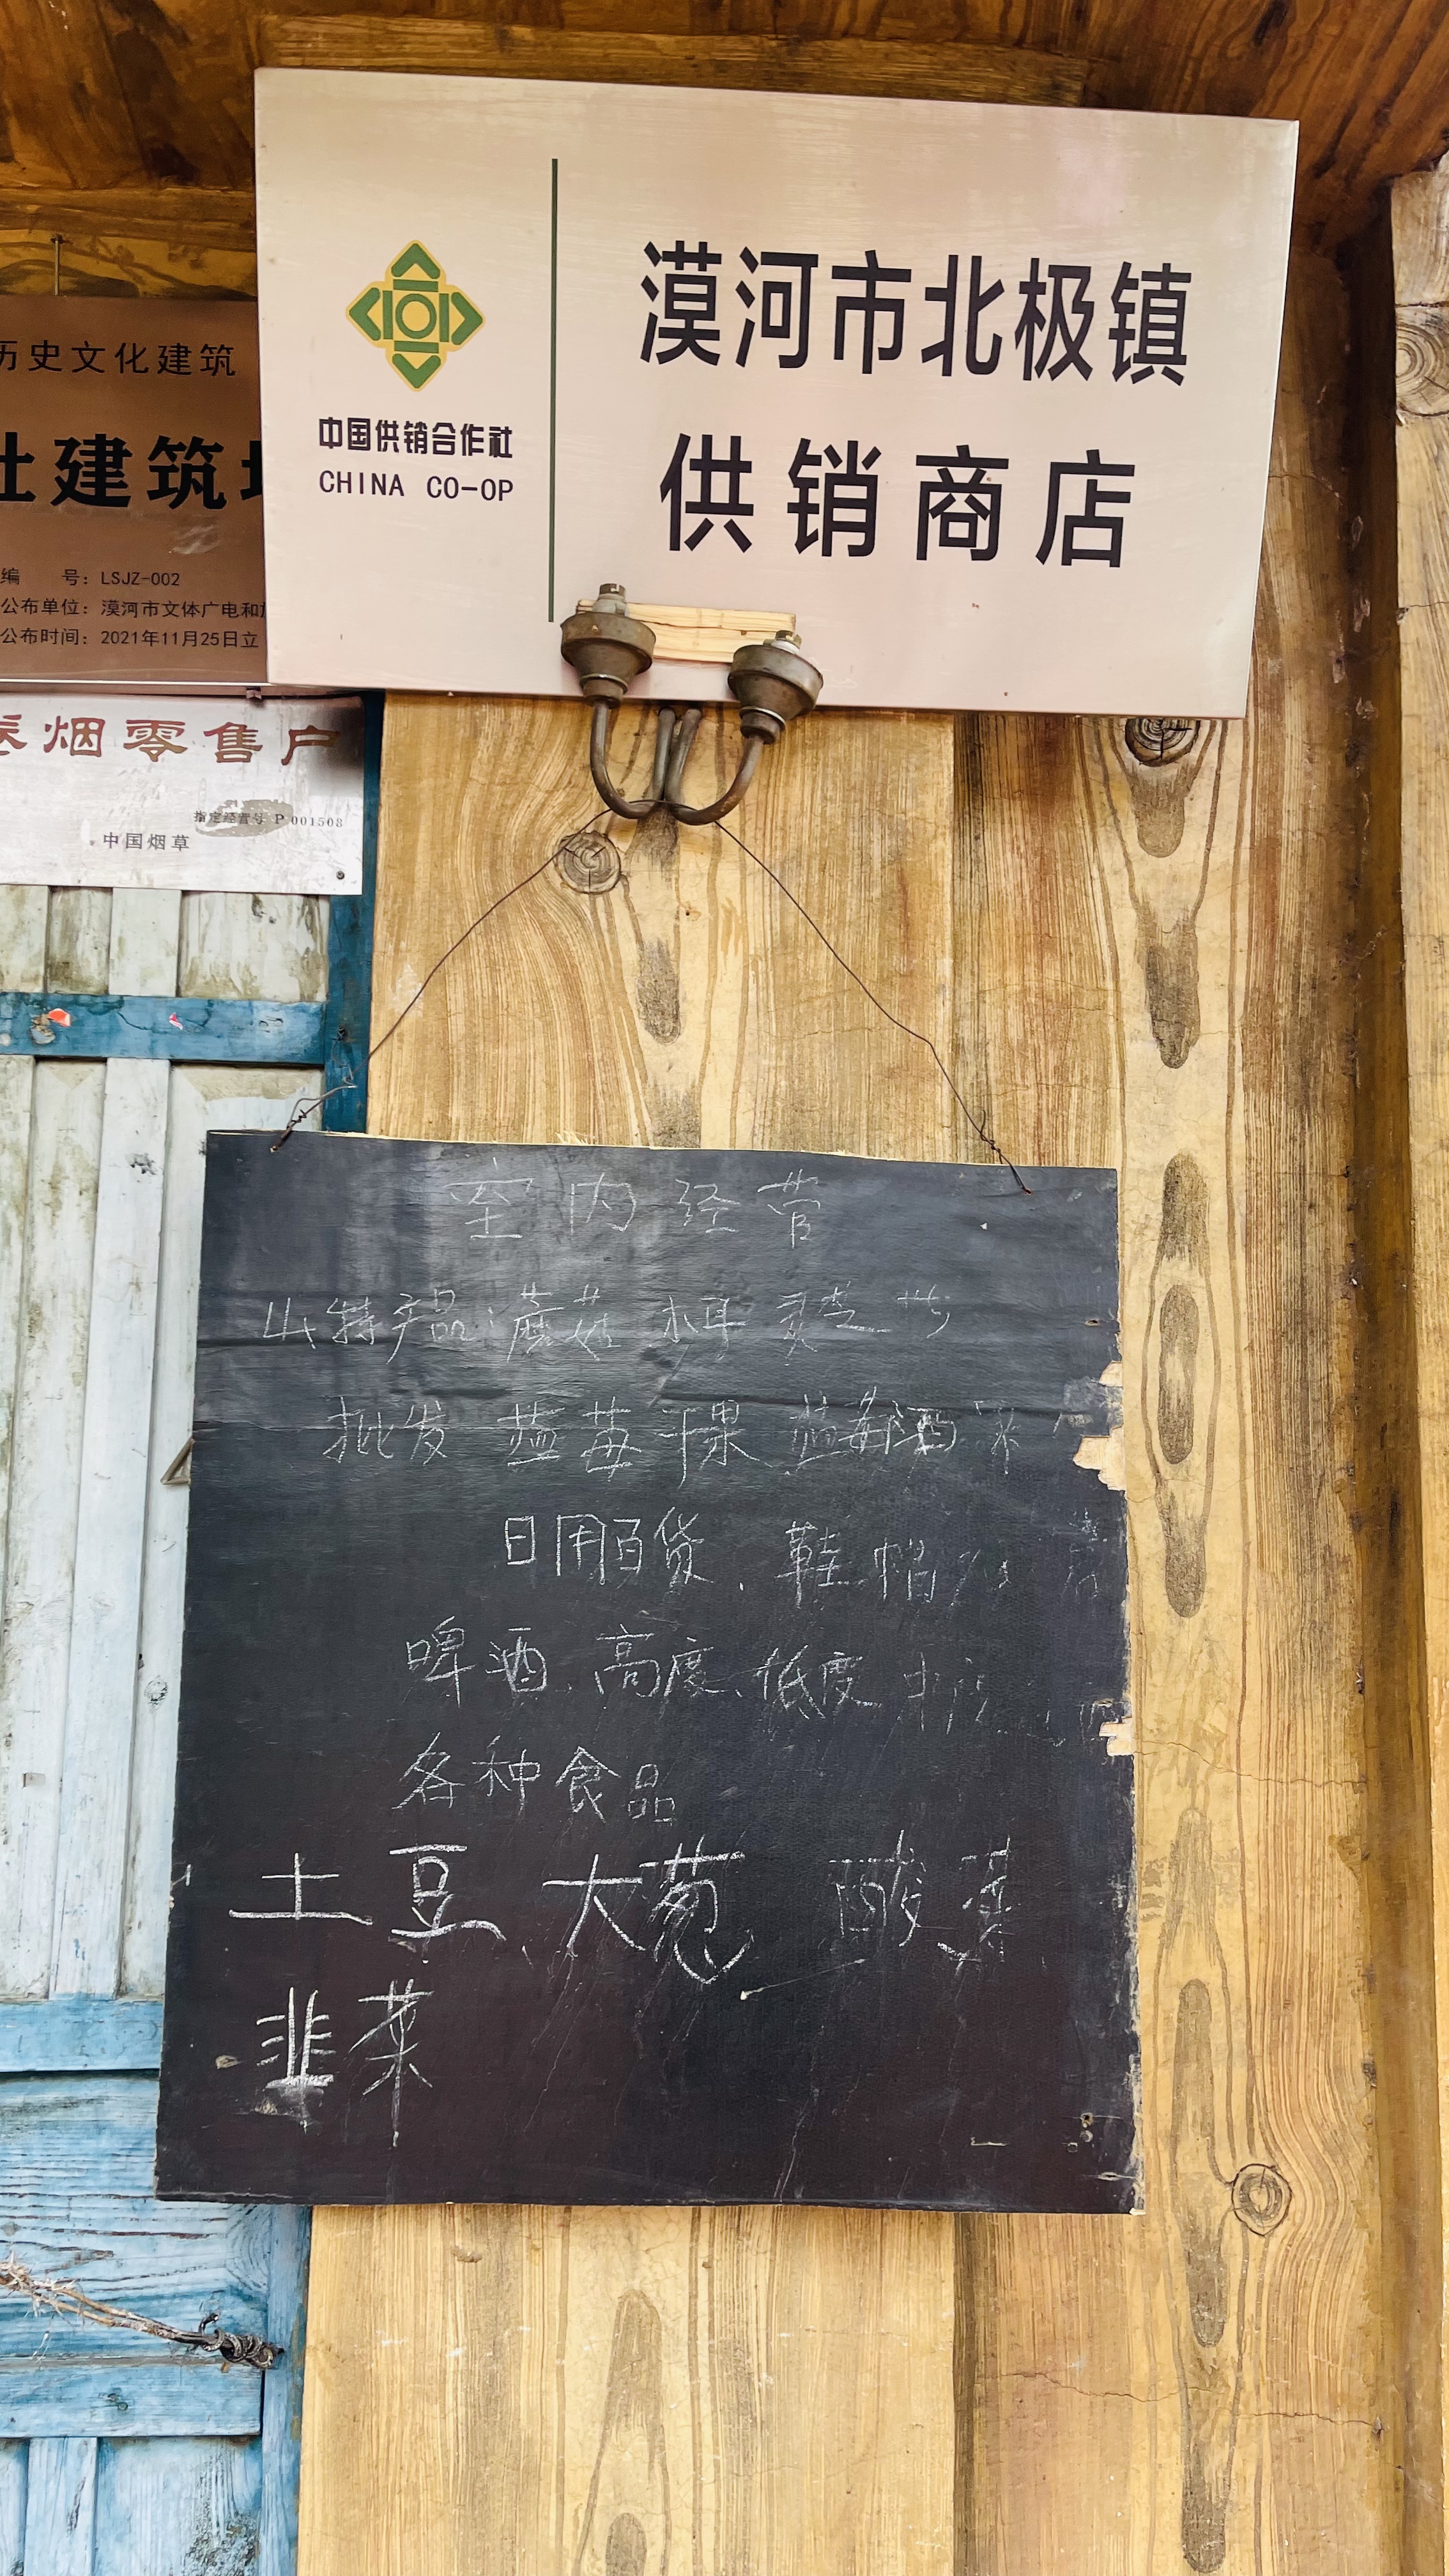 漠河市北极镇
供销商店
中国供销合作社
CHINA CO-OP
历史文化建筑
社建筑
编 号：LSJZ-002
公布单位：漠河市文体广电和
公布时间：2021年11月25日立
烟零售户
指定经营号 P 001508
中国烟草
室内经营
山特产品：蘑菇 木耳 灵芝
批发 蓝莓干果 蓝莓酒
日用百货、鞋帽
啤酒、高度、低度
各种食品
土豆、大葱、酸菜
韭菜